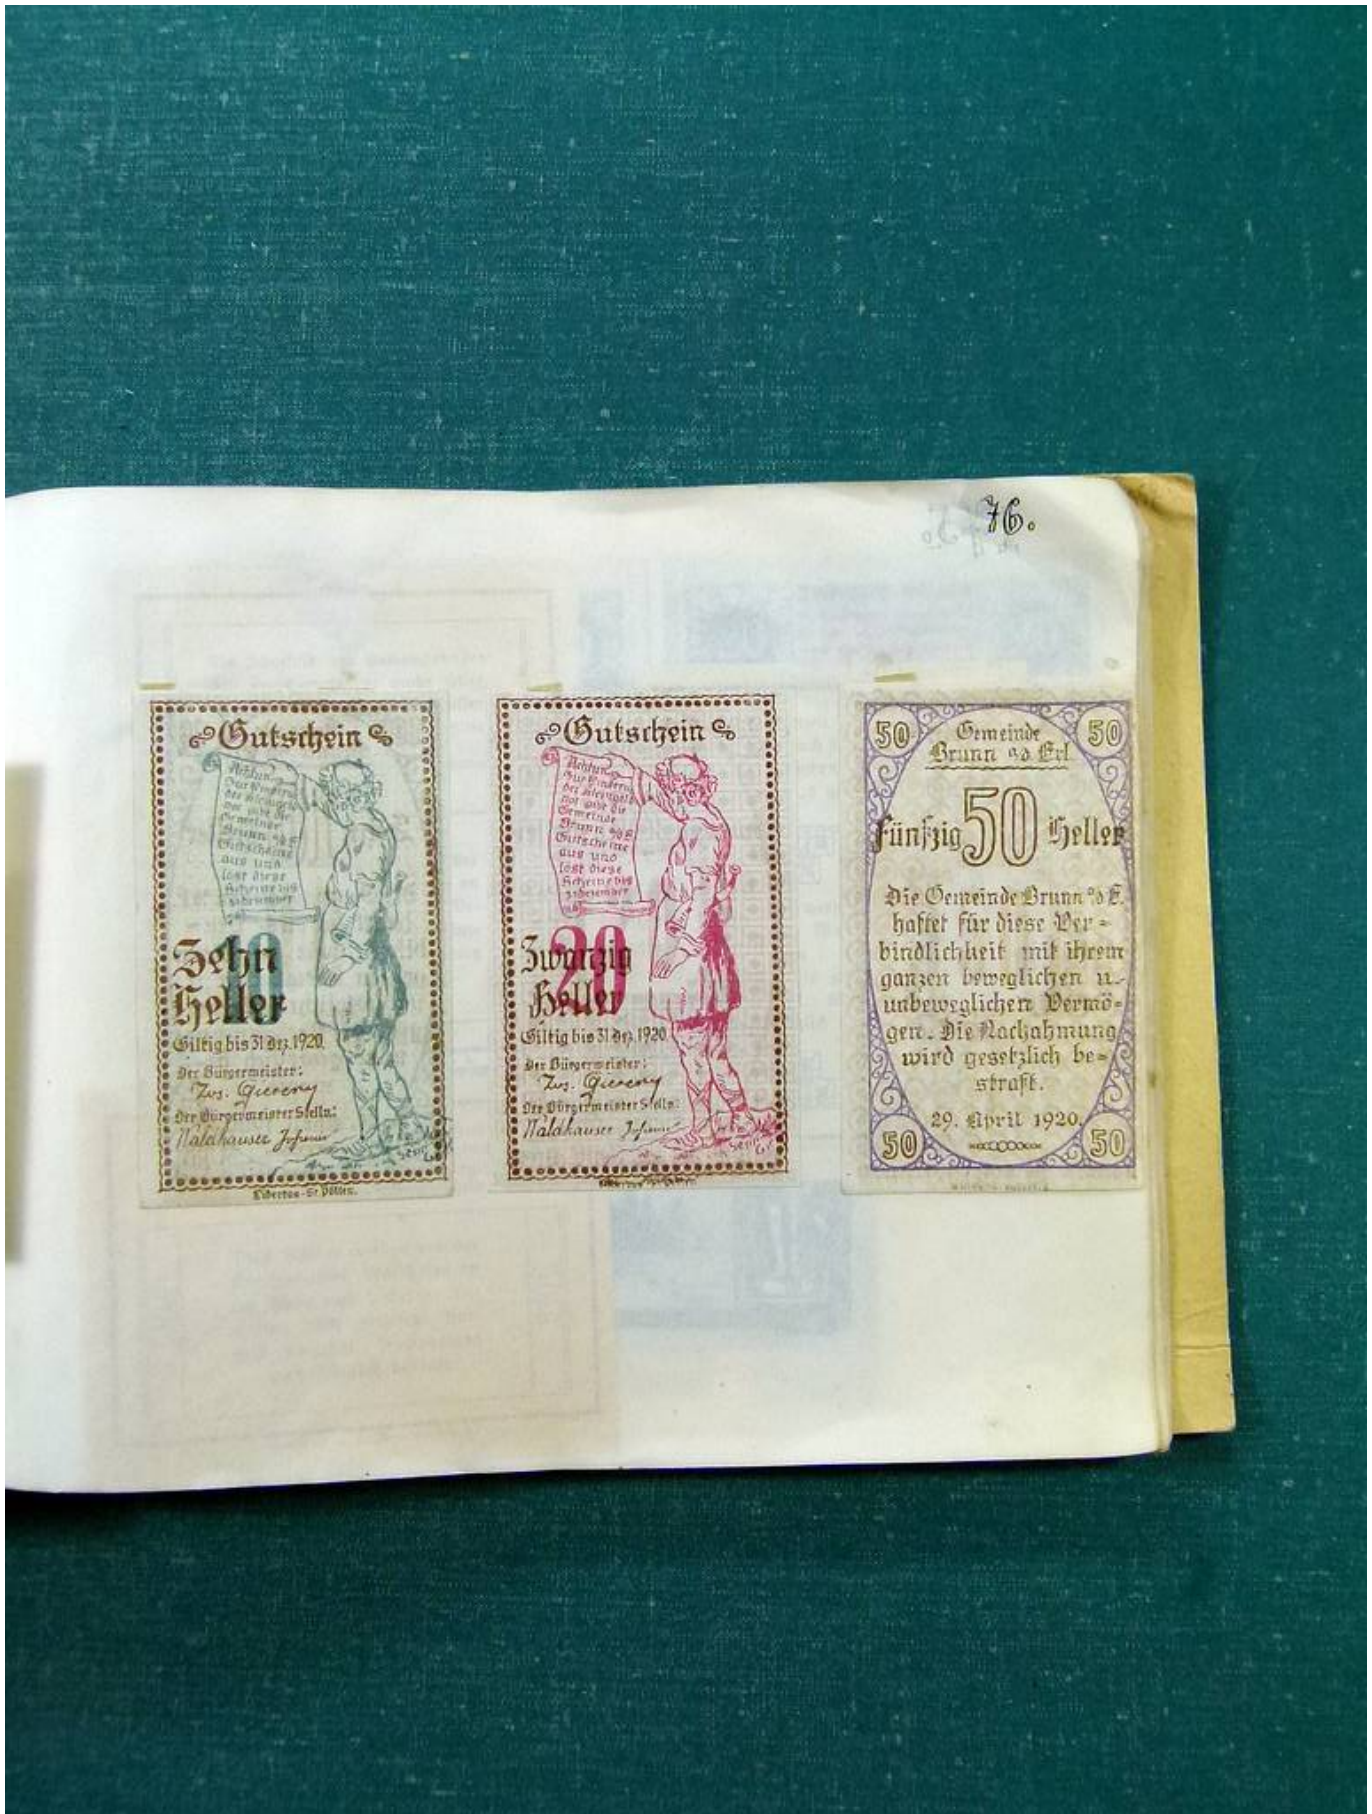 76.
Gutschein
Achtung
Zur Linderung
der Kleingeld
not gibt die
Gemeinde
Brunn a/d E
Gutscheine
aus und
löst diese
Scheine bis
31 Dezember
10
Zehn
Heller
Giltig bis 31 Dez. 1920.
Der Bürgermeister:
Der Bürgermeister Stellv:
Waldhauser Johann
Libertas - St. Pölten.
Gutschein
Achtung
Zur Linderung
der Kleingeld
not gibt die
Gemeinde
Brunn a/d E
Gutscheine
aus und
löst diese
Scheine bis
31 Dezember
20
Zwanzig
Heller
Giltig bis 31 Dez. 1920.
Der Bürgermeister:
Der Bürgermeister Stellv:
Waldhauser Johann
50 50
Gemeinde
Brunn a/d Erl.
Fünfzig 50 Heller
Die Gemeinde Brunn a/d E.
haftet für diese Ver=
bindlichkeit mit ihrem
ganzen beweglichen u.
unbeweglichen Vermö=
gen. Die Nachahmung
wird gesetzlich be=
straft.
29. April 1920.
50 50